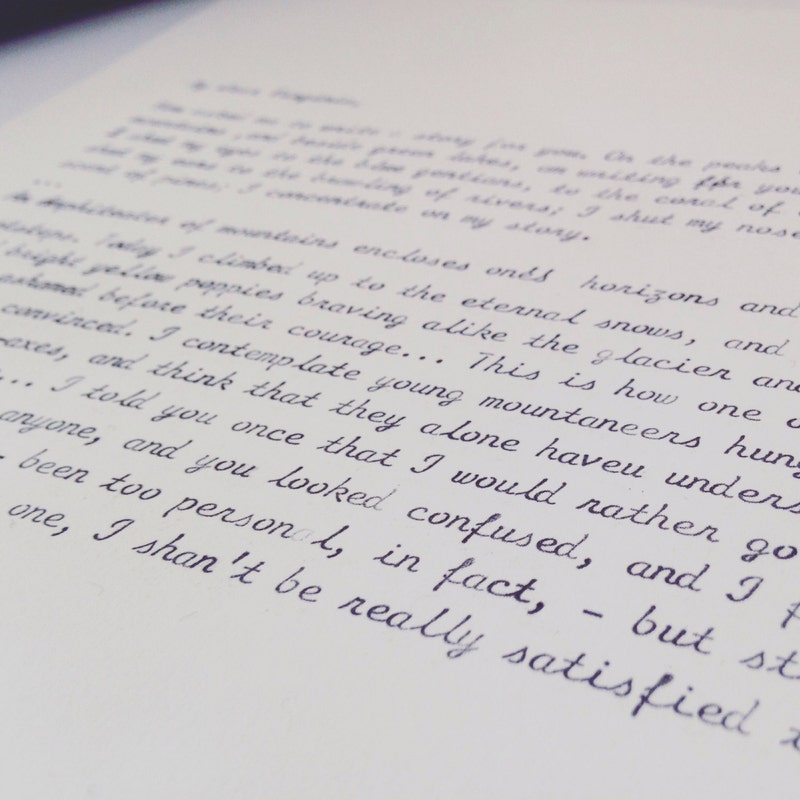 You asked me to write a story for you. On the peaks
mountains, and beside green lakes, I'm writing for you
I shut my eyes to the blue gentians, to the coral of
shut my ears to the brawling of rivers; I shut my nose
scent of pines; I concentrate on my story.
...
An Amphiteater of mountains encloses one's horizons and
footsteps. Today I climbed up to the eternal snows, and
bright yellow poppies braving alike the glacier and
ashamed before their courage... This is how one
convinced. I contemplate young mountaneers hung
-axes, and think that they alone haveu unders
... I told you once that I would rather go
anyone, and you looked confused, and I
been too personal, in fact, - but st
one, I shan't be really satisfied